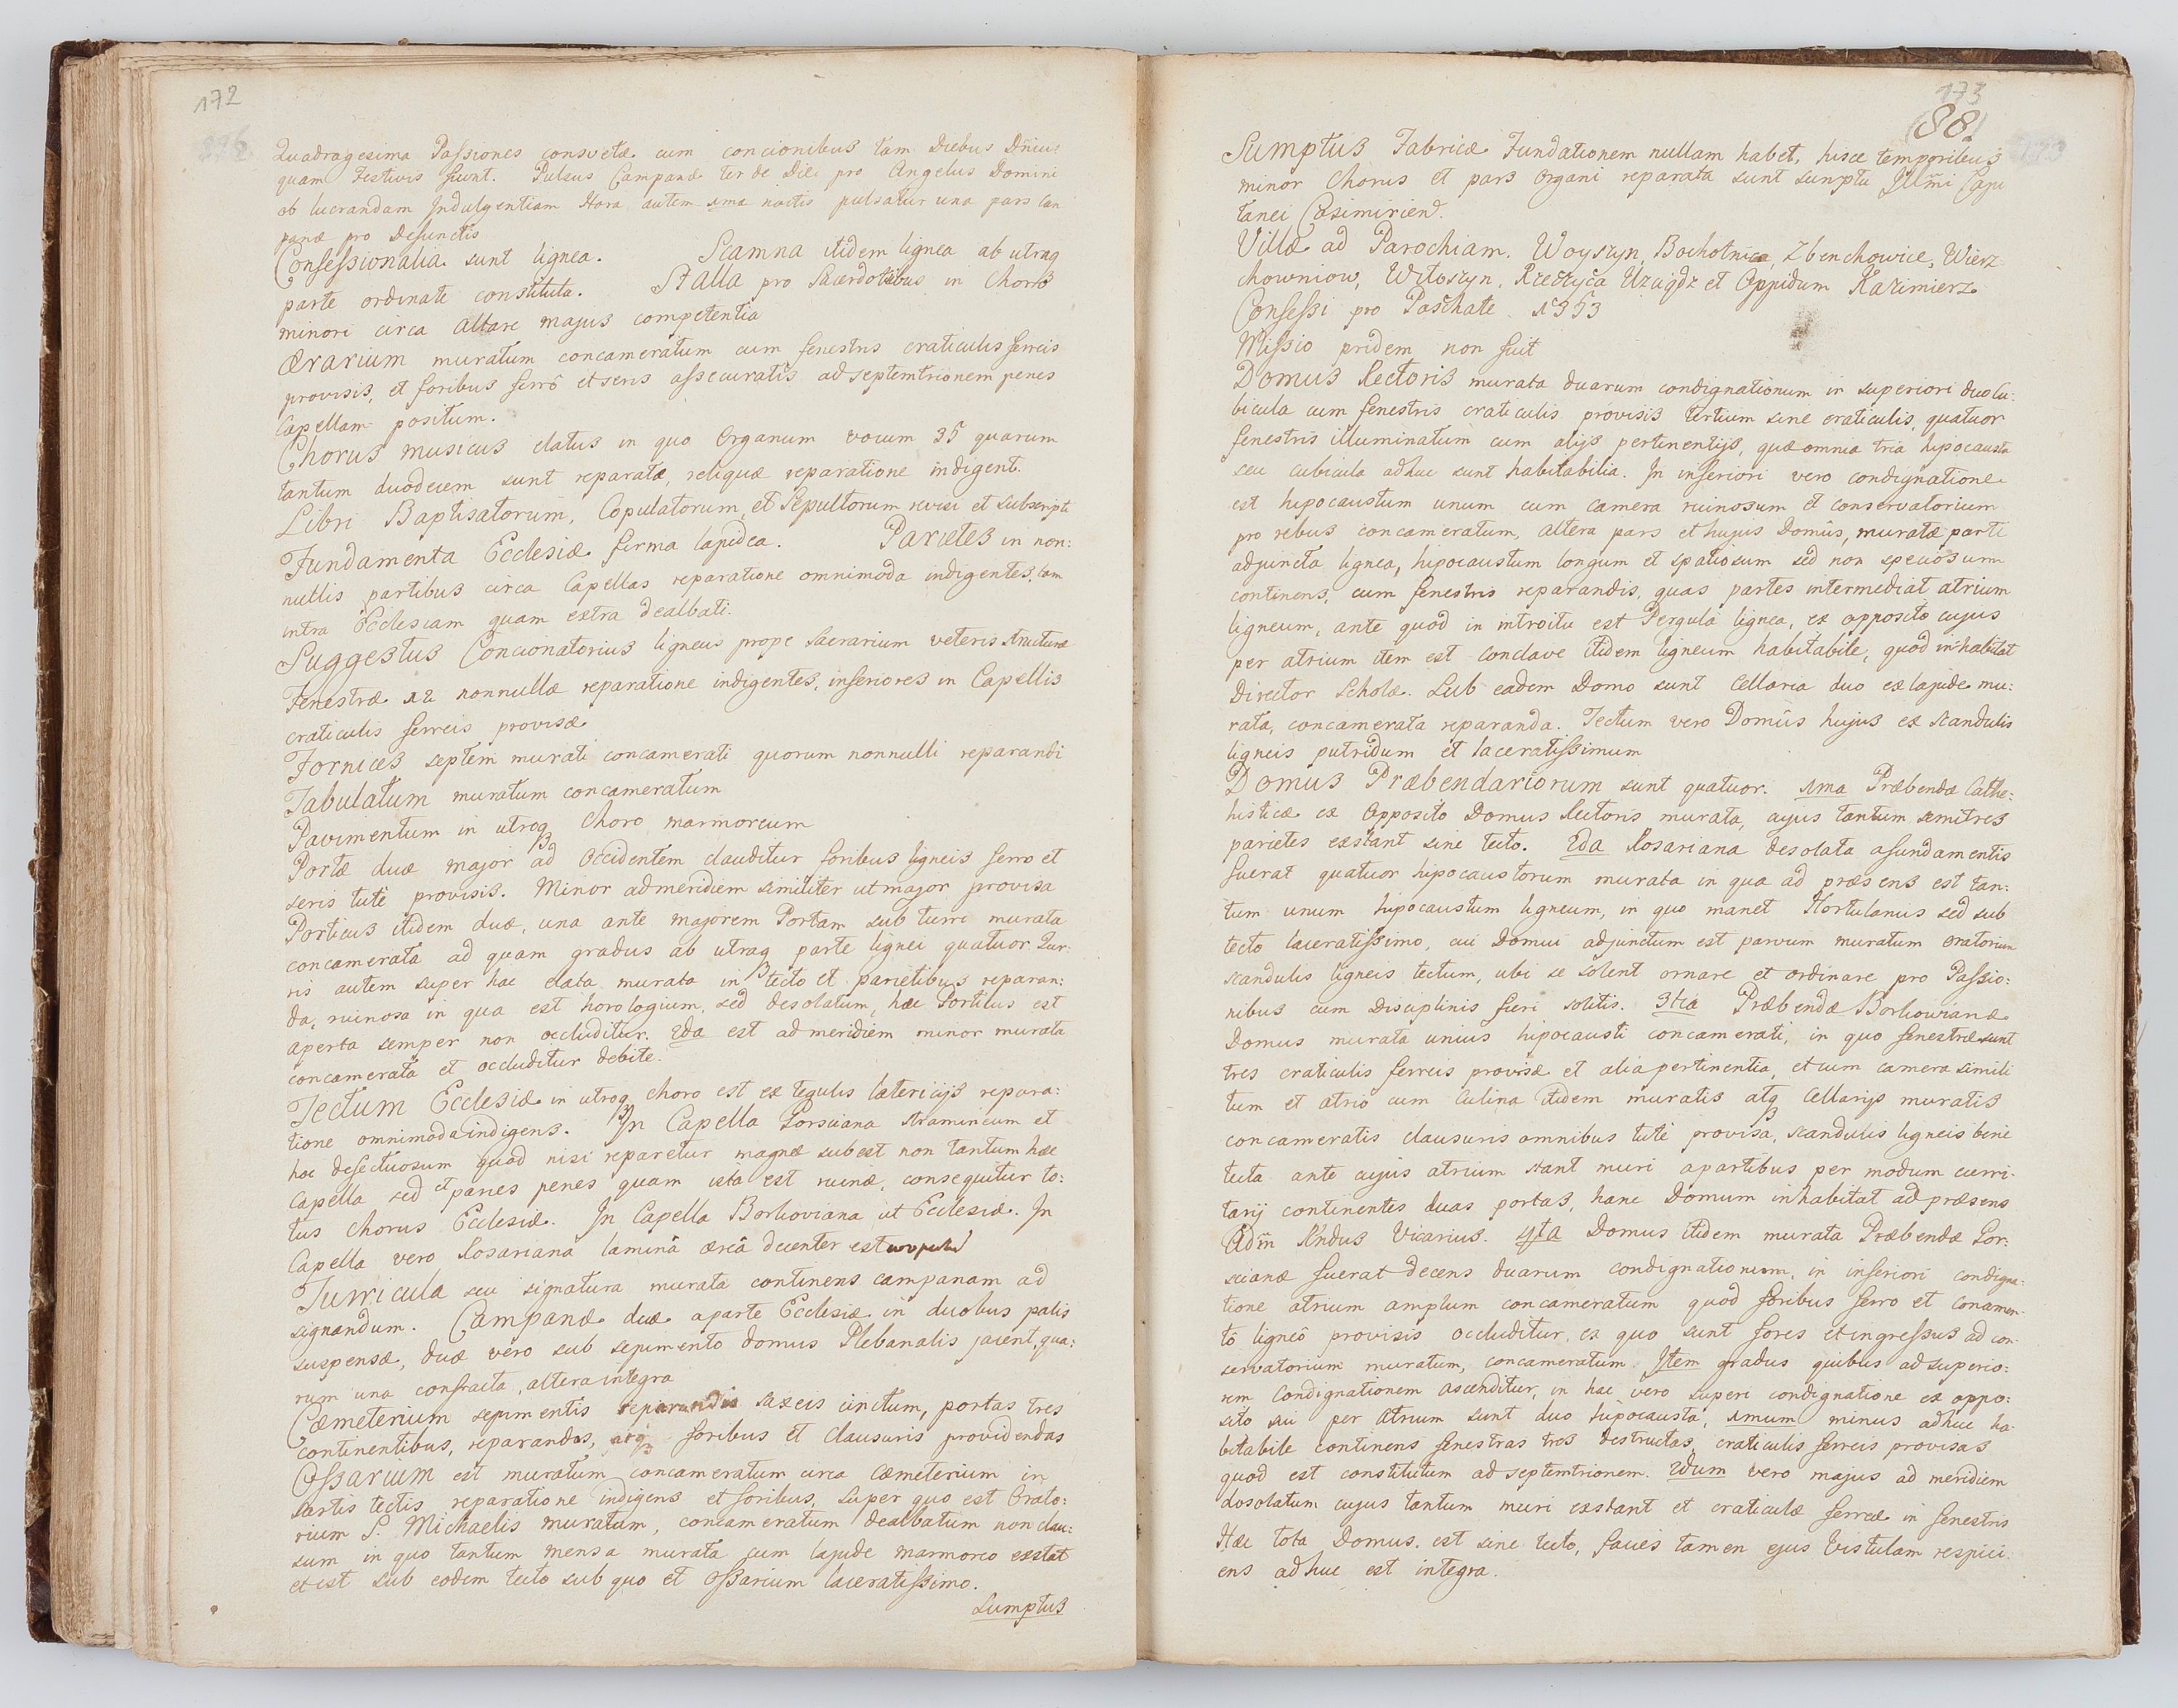 172
Quadragesima Passiones consvetæ cum concionibus tam Diebus Dñicis
quam Festivis fiunt. Pulsus Campanæ ter de Die pro Angelus Domini
ob lucrandam Indulgentiam Hora autem 1ma noctis pulsatur una pars Cam
panæ pro Defunctis
Confessionalia sunt lignea. Scamna itidem lignea ab utraq
parte ordinate constituta. Stalla pro Sacerdotibus in Choro
minori circa Altare majus competentia
Ærarium muratum concameratum cum fenestris craticulis ferreis
provisis, et foribus ferrô et seris assecuratis ad septemtrionem penes
Capellam positum.
Chorus musicus elatus in quo Organum vocum 35 quarum
tantum duodecem sunt reparatæ, reliquæ reparatione indigent.
Libri Baptisatorum, Copulatorum, et Sepultorum revisi et subscripti
Fundamenta Ecclesiæ firma lapidea. Parietes in non:
nullis partibus circa Capellas reparatione omnimoda indigentes, tam
intra Ecclesiam quam extra dealbati.
Suggestus Concionatorius ligneus prope Sacrarium veteris structuræ
Fenestræ 12 nonnullæ reparatione indigentes, inferiores in Capellis
craticulis ferreis provisæ
Fornices septem murati concamerati quorum nonnulli reparandi
Tabulatum muratum concameratum
Pavimentum in utroq Choro marmoreum
Portæ duæ major ad Occidentem clauditur foribus ligneis ferro et
seris tutè provisis. Minor ad meridiem similiter ut major provisa
Porticus itidem duæ, una ante majorem Portam sub turri murata
concamerata ad quam gradus ab utraq parte lignei quatuor. Tur:
ris autem super hac elata murata in tecto et parietibus reparan:
da, ruinosa in qua est horologium, sed desolatum, hæc Porticus est
aperta semper non occluditur. 2da est ad meridiem minor murata
concamerata et occluditur debite.
Tectum Ecclesiæ in utroq choro est ex tegulis latericijs repara:
tione omnimoda indigens. In Capella Gorsciana stramineum et
hoc defectuosum quod nisi reparetur magnæ subest non tantum hæc
Capella sed et paries penes quam ista est ruinæ, consequitur to:
tus chorus Ecclesiæ. In Capella Borkoviana ut Ecclesiæ. In
Capella vero Rosariana laminâ æreâ decenter est
Turricula seu signatura murata continens campanam ad
signandum. Campanæ duæ a parte Ecclesiæ in duobus palis
suspensæ, duæ vero sub sepimento domus Plebanalis jacent, qua:
rum una confracta, altera integra
Cæmeterium sepimentis reparandis saxeis cinctum, portas tres
continentibus, reparandas, atq foribus et clausuris providendas
Ossarium est muratum concameratum circa Cæmeterium in
sartis tectis reparatione indigens et foribus, super quo est Orato:
rium S. Michaelis muratum, concameratum dealbatum non clau:
sum in quo tantum mensa murata cum lapide marmoreo exstat
et est sub eodem tecto sub quo et Ossarium laceratissimo.
Sumptus
173
88
Sumptus Fabricæ Fundationem nullam habet, hisce temporibus
minor Chorus et pars Organi reparata sunt sumptu Illmi Capi
tanei Casimirien.
Villæ ad Parochiam. Woyszyn, Bochotnica, Zbenchowice, Wierz
chowniow, Witoszyn, Rzeczyca Uzigdz et Oppidum Kazimierz
Confessi pro Paschate 1353
Missio pridem non fuit
Domus Rectoris murata duarum condignationum in superiori duo cu:
bicula cum fenestris craticulis provisis tertium sine craticulis, quatuor
fenestris illuminatum cum alijs pertinentijs, quæ omnia tria hipocausta
seu cubicula adhuc sunt habitabilia. In inferiori vero condignatione
est hipocaustum unum cum camera ruinosum et conservatorium
pro rebus concameratum, altera pars et hujus Domûs, muratæ parti
adjuncta lignea, hipocaustum longum et spatiosum sed non speciosum
continens, cum fenestris reparandis, quas partes intermediat atrium
ligneum, ante quod in introitu est Pergula lignea, ex opposito cujus
per atrium item est conclave itidem ligneum habitabile, quod inhabitat
Director Scholæ. Sub eadem Domo sunt Cellaria duo ex lapide mu:
rata, concamerata reparanda. Tectum vero Domûs hujus ex scandulis
ligneis putridum et laceratissimum
Domus Præbendariorum sunt quatuor. 1ma Præbendæ Cathe:
histicæ ex Opposito Domus Rectoris murata, cujus tantum semitres
parietes exstant sine tecto. 2da Rosariana desolata a fundamentis
fuerat quatuor hipocaustorum murata in qua ad præsens est tan:
tum unum hipocaustum ligneum, in quo manet Hortulanus sed sub
tecto laceratissimo, cui Domui adjunctum est parvum muratum oratorium
scandulis ligneis tectum, ubi se solent ornare et ordinare pro Passio:
nibus cum Disciplinis fieri solitis. 3tia Præbendæ Borkowianæ
Domus murata unius hipocausti concamerati, in quo fenestræ sunt
tres craticulis ferreis provisæ et alia pertinentia, et cum camera simili
tum et atrio cum Culina itidem muratis atq Cellarijs muratis
concameratis clausuris omnibus tutè provisa, scandulis ligneis bene
tecta ante cujus atrium stant muri a partibus per modum curri:
tarij continentes duas portas, hanc Domum inhabitat ad præsens
Adm Rndus Vicarius. 4ta Domus itidem murata Præbendæ Gor:
scianæ fuerat decens duarum condignationum, in inferiori condigna:
tione atrium amplum concameratum quod foribus ferro et conamen:
tô ligneô provisis occluditur, ex quo sunt fores et ingressus ad con:
servatorium muratum, concameratum. Item gradus quibus ad superio:
rem Condignationem ascenditur, in hac vero superi condignatione ex oppo:
sito sui per Atrium sunt duo hipocausta, 1mum minus adhuc ha:
bitabile continens fenestras tres destructas, craticulis ferreis provisas
quod est constitutum ad septemtrionem. 2dum vero majus ad meridiem
dosolatum cujus tantum muri exstant et craticulæ ferreæ in fenestris
Hæc tota Domus. est sine tecto, facies tamen ejus Vistulam respici:
ens adhuc est integra.